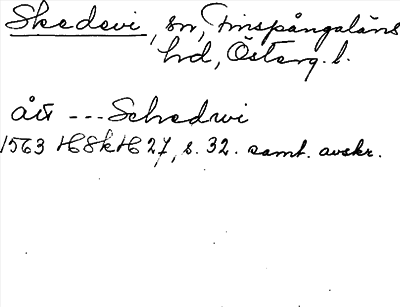 Skedevi, sn, Finspångaläns
hd, Österg. l.
ått --- Schedwi
1563 HSkH 27, s. 32. samt. avskr.